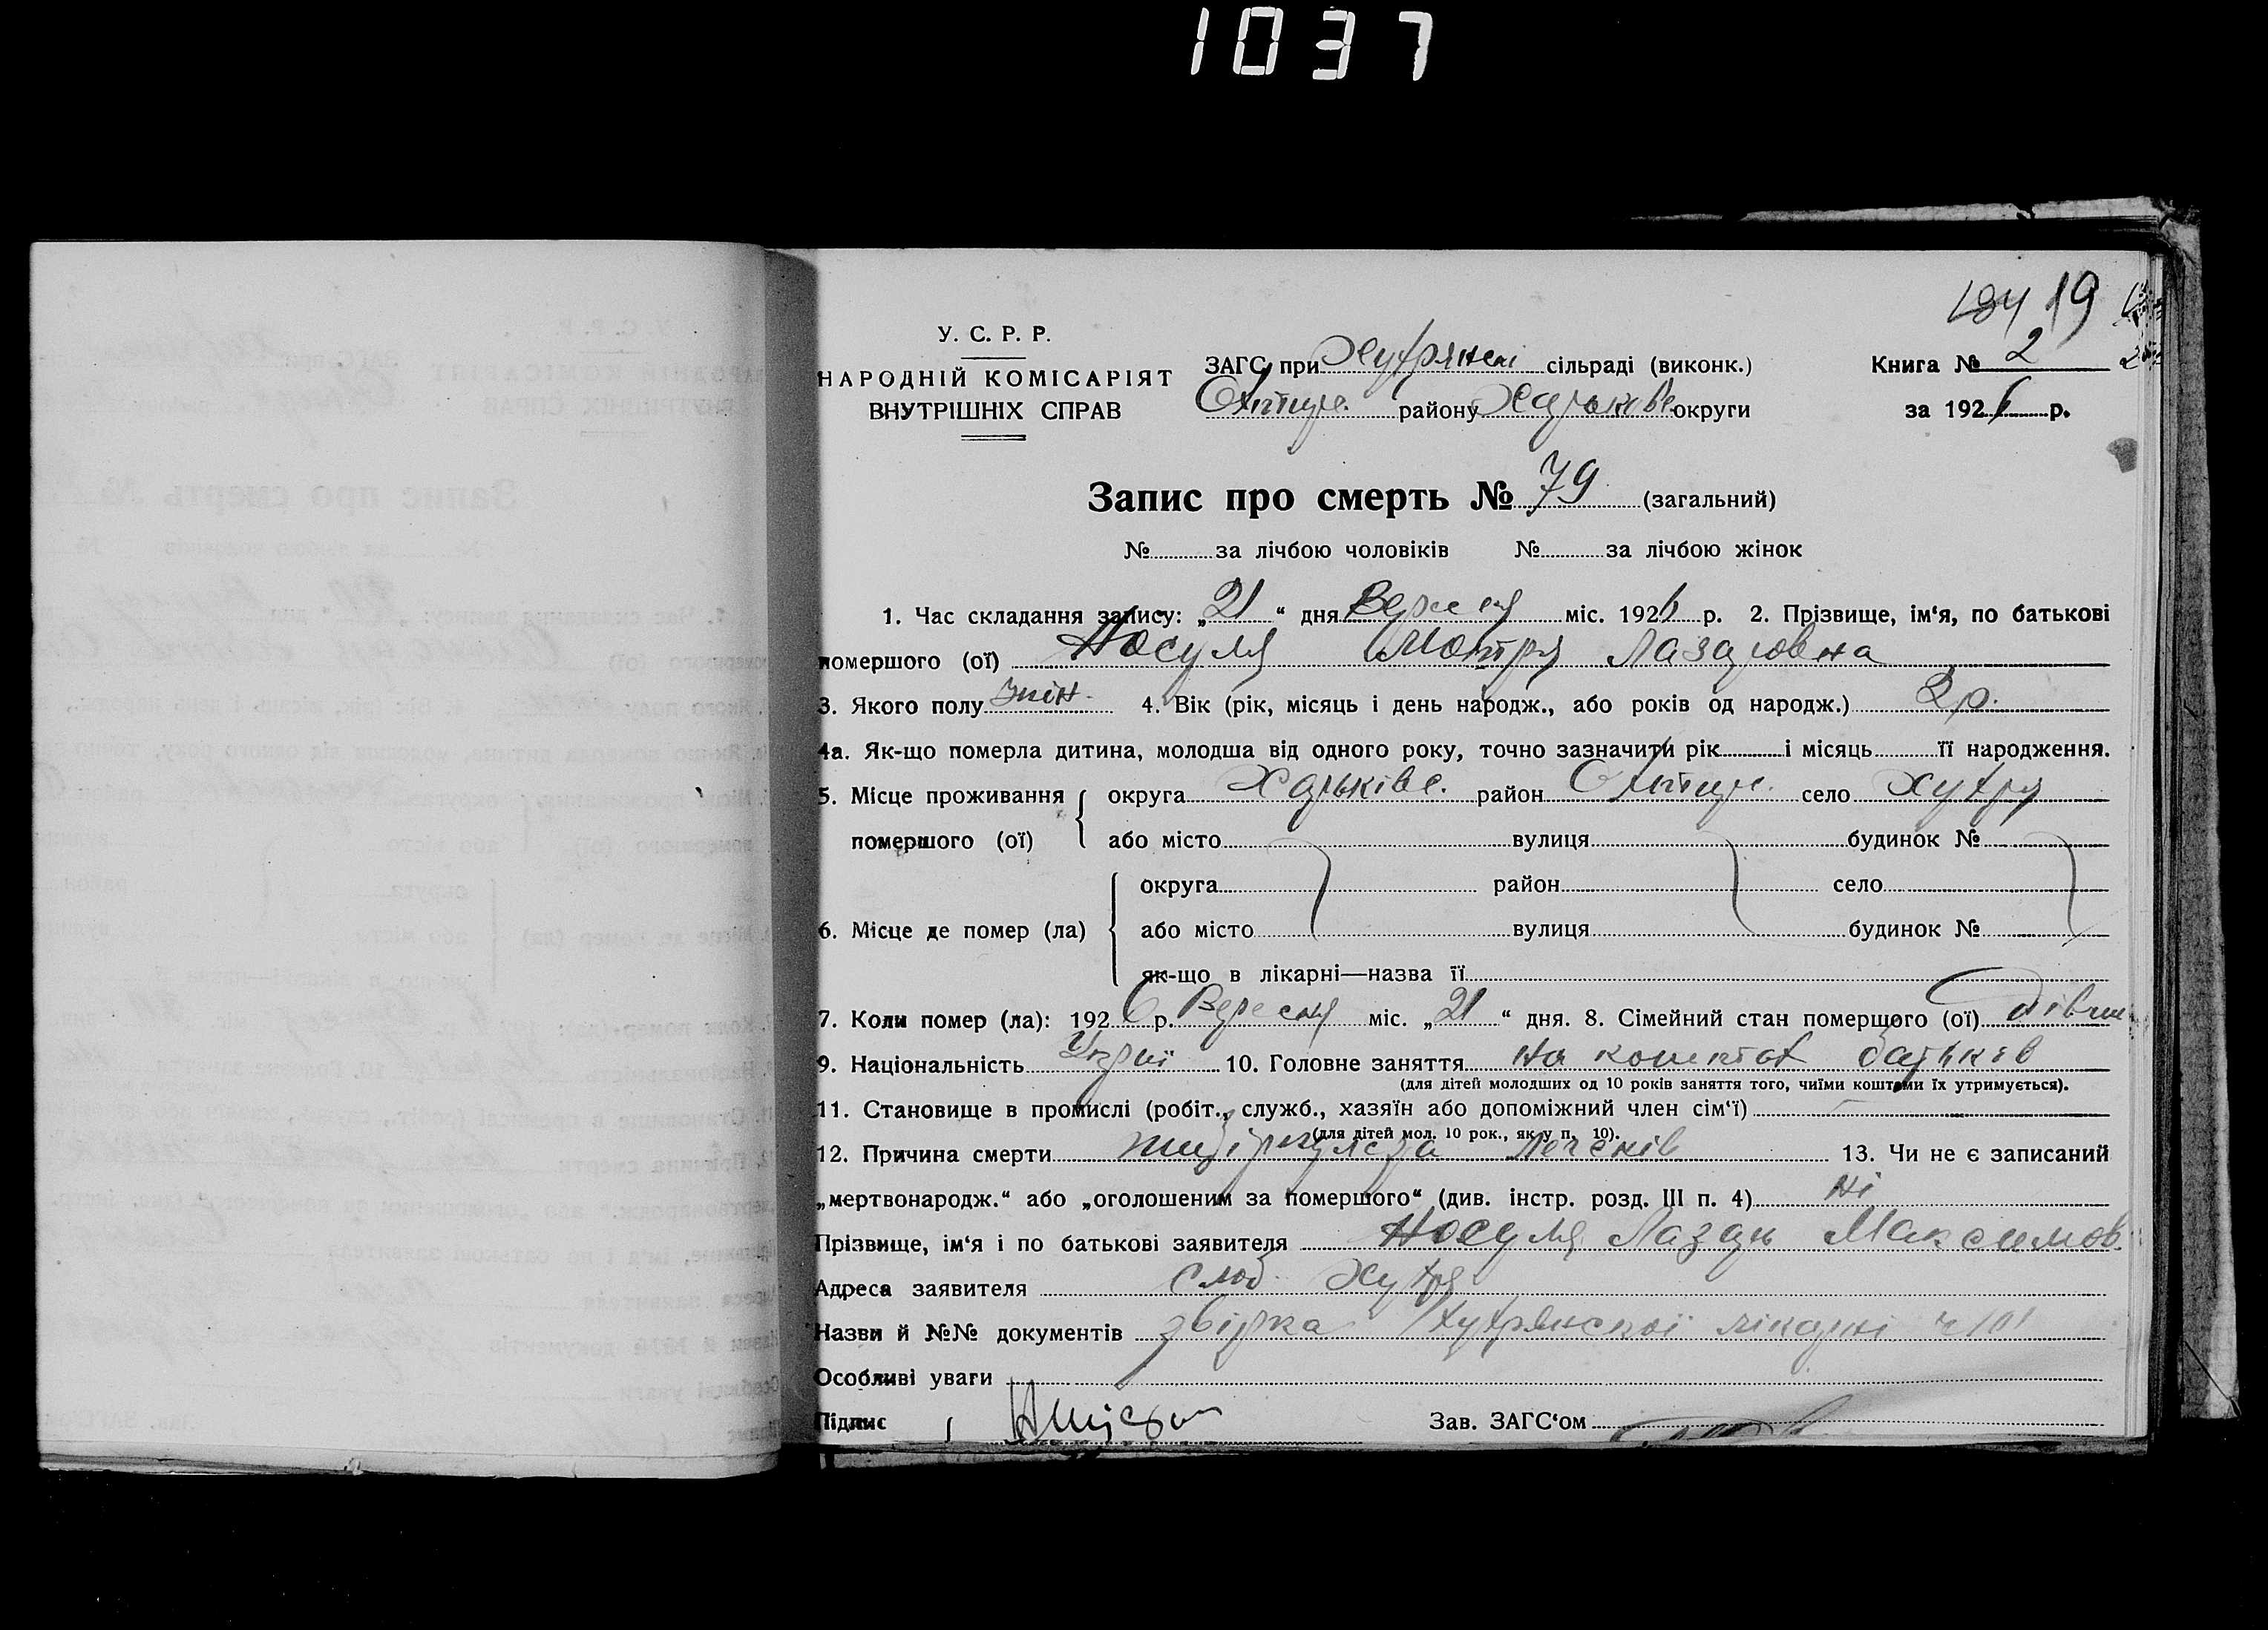 1037
19
У. С. Р. Р.
НАРОДНІЙ КОМІСАРІЯТ
ВНУТРІШНІХ СПРАВ
ЗАГС при Хухрянскі сільраді (виконк.)
Охтирс. району Харьківс округи
Книга № 2
за 1926 р.
Запис про смерть № 79 (загальний)
№ за лічбою чоловіків № за лічбою жінок
1. Час складання запису: „21“ дня Вересня міс. 1926 р. 2. Прізвище, ім‘я, по батькові
помершого (ої) Носуля Мотря Лазаровна
3. Якого полу жін. 4. Вік (рік, місяць і день народж., або років од народж.) 2 р.
4а. Як-що померла дитина, молодша від одного року, точно зазначити рік і місяць її народження.
5. Місце проживання помершого (ої) округа Харьківс. район Охтирс. село Хухря
або місто вулиця будинок №
6. Місце де помер (ла) округа район село
або місто вулиця будинок №
як-що в лікарні—назва її
7. Коли помер (ла): 1926 р. Вересня міс. „21“ дня. 8. Сімейний стан померщого (ої)
9. Національність Укрні 10. Головне заняття на коштах батьків
(для дітей молодших од 10 років заняття того, чиїми коштами їх утримується).
11. Становище в промислі (робіт., служб., хазяїн або допоміжний член сім‘ї) —
(для дітей мол. 10 рок., як у п. 10).
12. Причина смерти легенів 13. Чи не є записаний
„мертвонародж.“ або „оголошеним за помершого“ (див. інстр. розд. III п. 4) ні
Прізвище, ім‘я і по батькові заявителя Носуля Лазарь Максимов
Адреса заявителя слоб. Хухря
Назви й №№ документів Хухрянскої лікарні ч 101
Особливі уваги
Підпис
Зав. ЗАГС‘ом